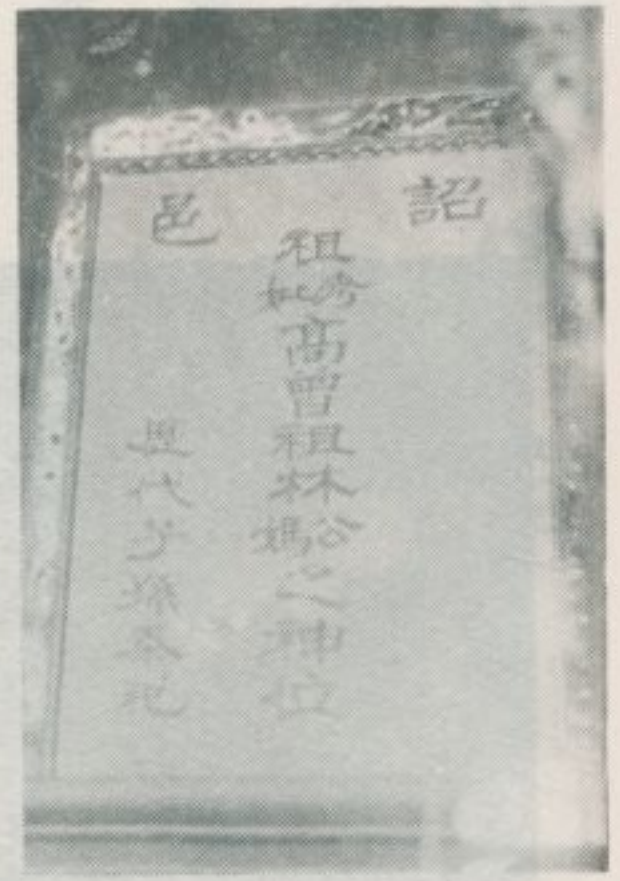 詔邑
祖考妣高曾祖林公媽之神位
代子孫奉祀